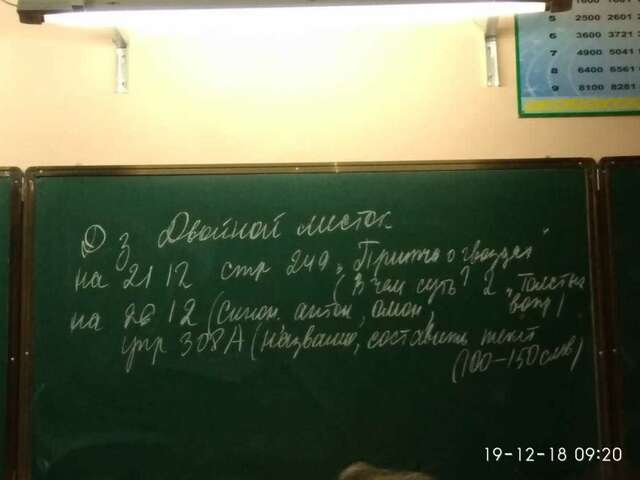 1600 1681
5 2500 2601 2
6 3600 3721 3
7 4900 5041
8 6400 6561 6
9 8100 8281
Д з Двойной листок
на 21 12 стр 249 „Притча о гвоздях"
(В чём суть? 2 „Толстых
на 26 12 (синон. антон, омон, вопр)
упр 308А (название, составить текст
(100-150 слов)
19-12-18 09:20